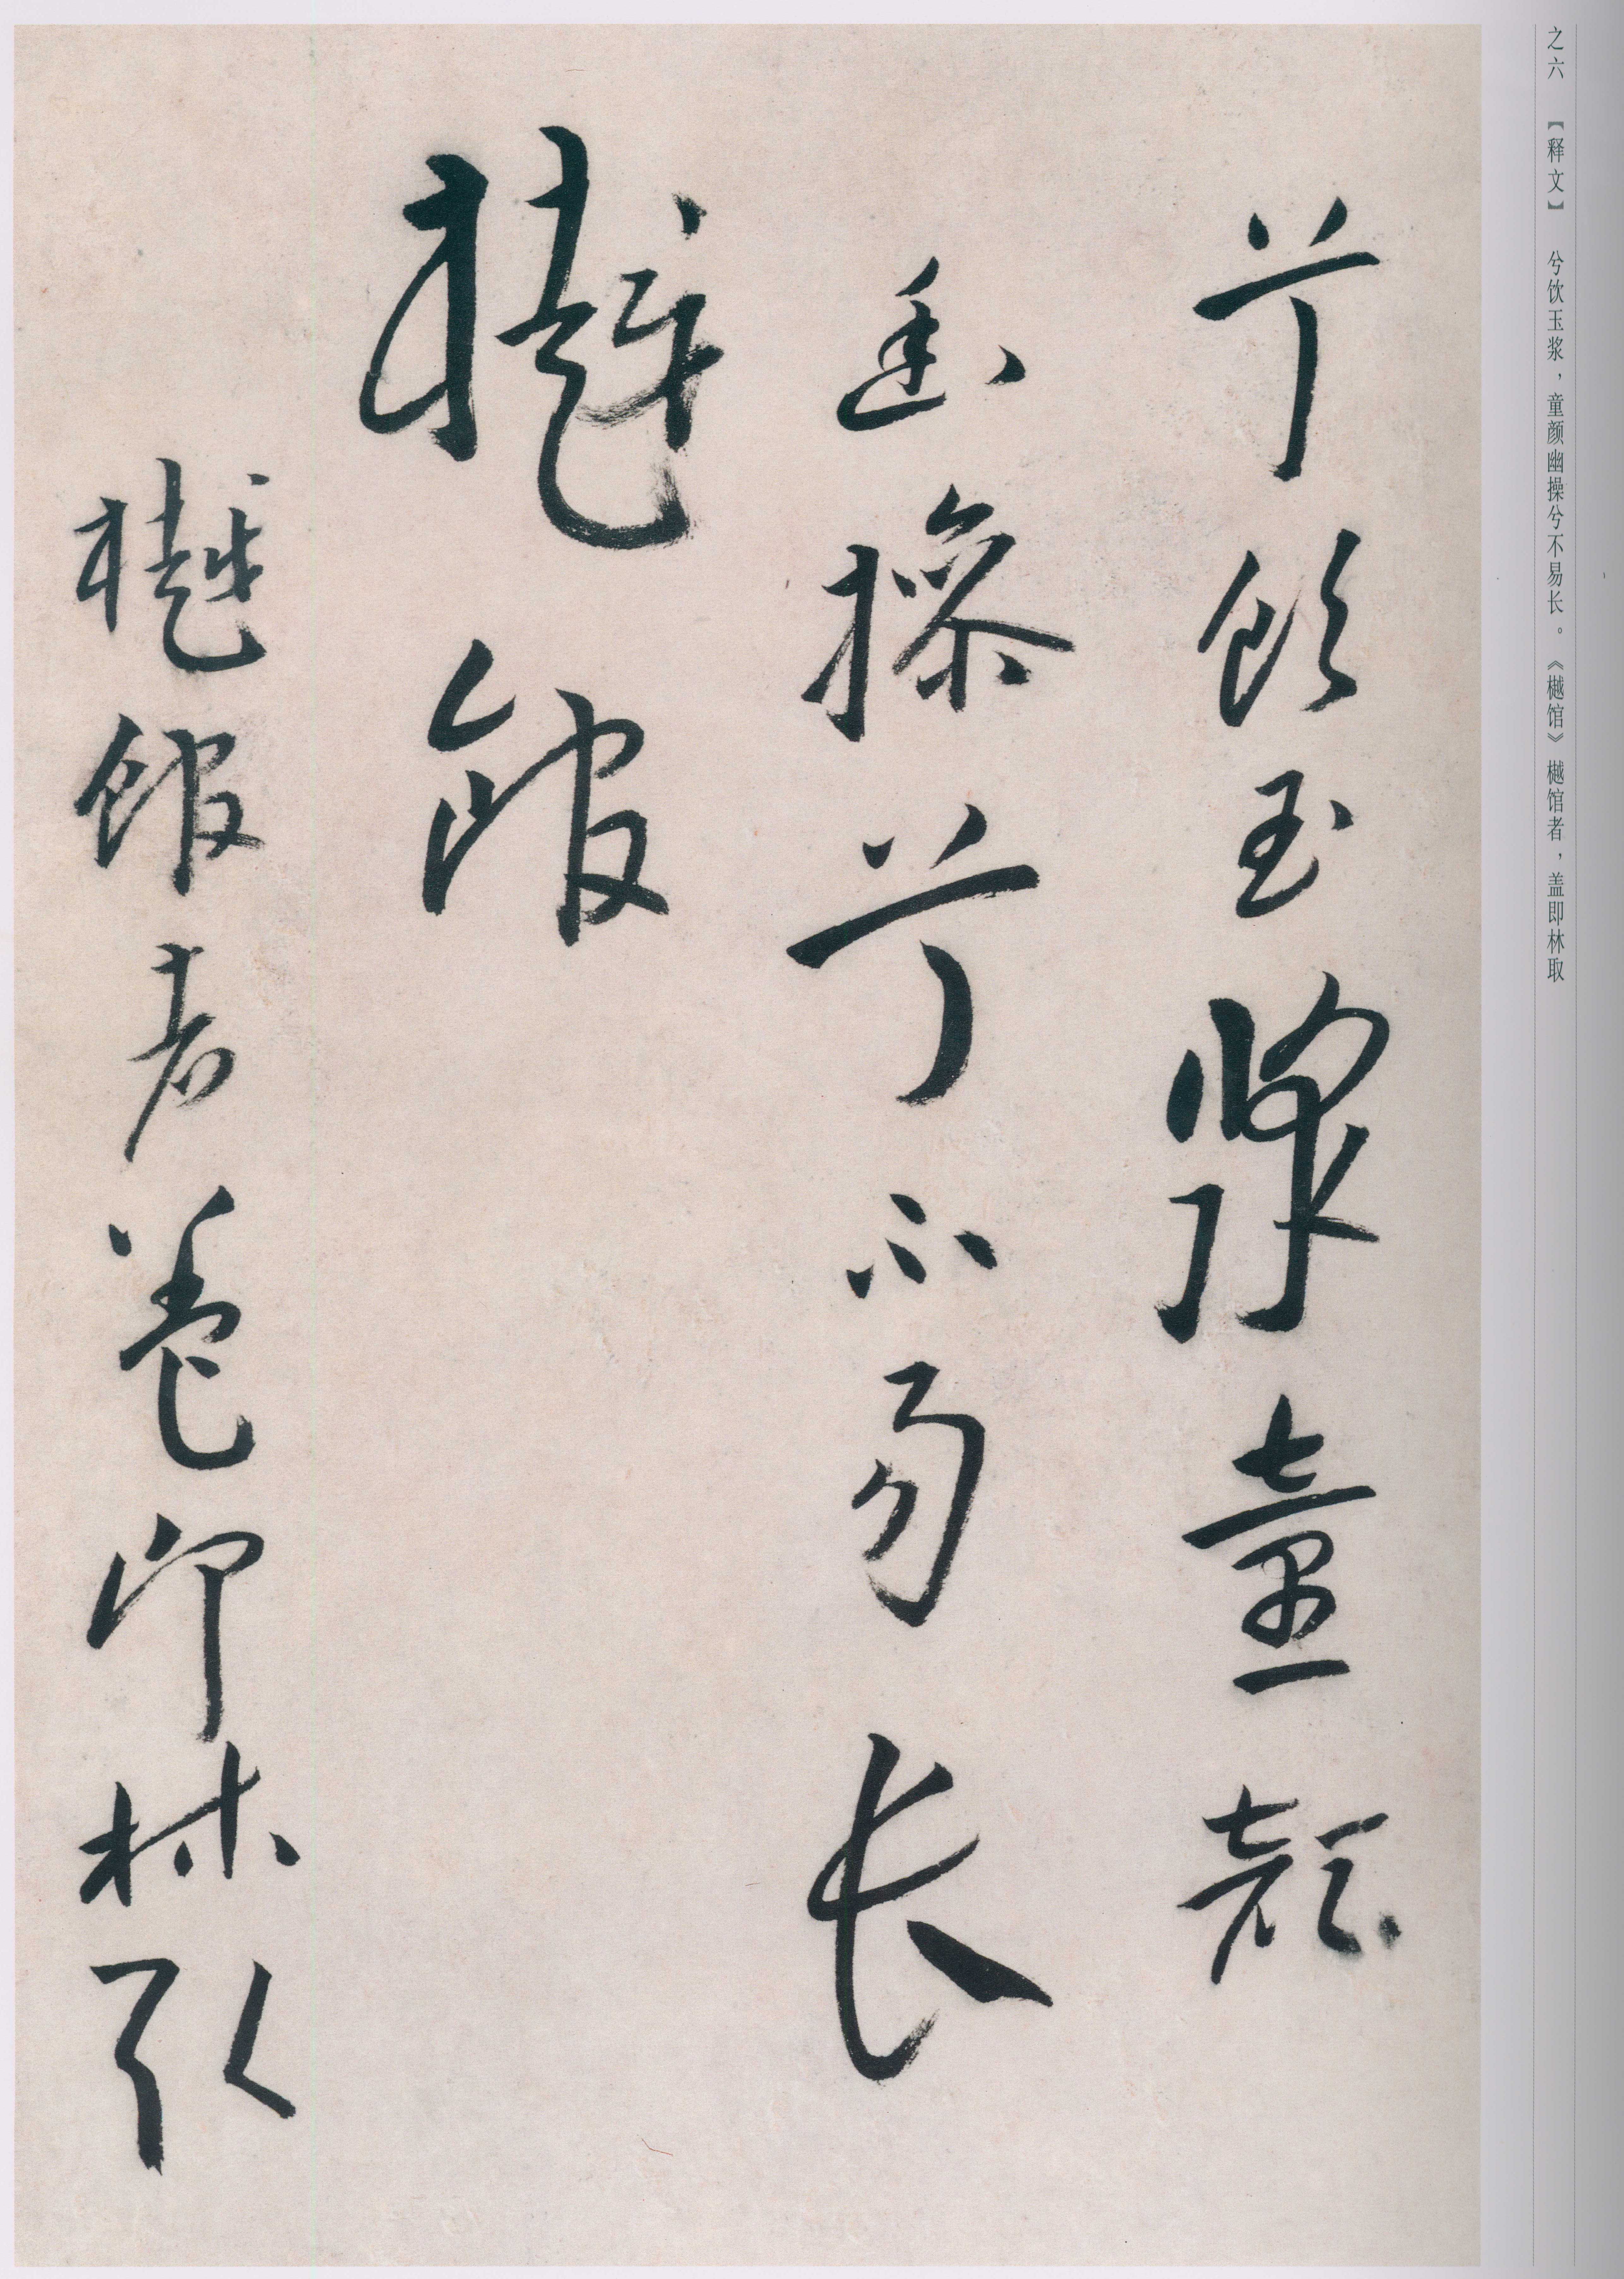 之六 【释文】 兮饮玉浆，童颜幽操兮不易长。《樾馆》樾馆者，盖即林取
兮飲玉漿童顏
幽操兮不易长
樾館
樾館者蓋即林取